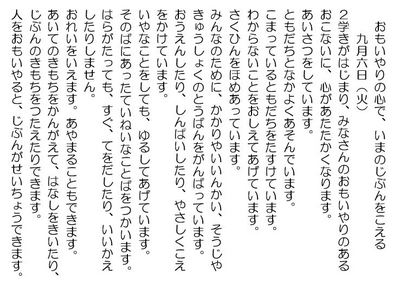 おもいやりの心で、いまのじぶんをこえる
九月六日(火)
２学きがはじまり、みなさんのおもいやりのある
おこないに、心があたたかくなります。
あいさつをしています。
ともだちとなかよくあそんでいます。
こまっているともだちをたすけています。
わからないことをおしえてあげています。
さくひんをほめあっています。
みんなのために、かかりやいいんかい、そうじや
きゅうしょくのとうばんをがんばっています。
おうえんしたり、しんぱいしたり、やさしくこえ
をかけています。
いやなことをしても、ゆるしてあげています。
そのばにあったていねいなことばをつかいます。
はらがたっても、すぐ、てをだしたり、いいかえ
したりしません。
おれいをいえます。あやまることもできます。
あいてのきもちをかんがえて、はなしをきいたり、
じぶんのきもちをつたえたりできます。
人をおもいやると、じぶんがせいちょうできます。